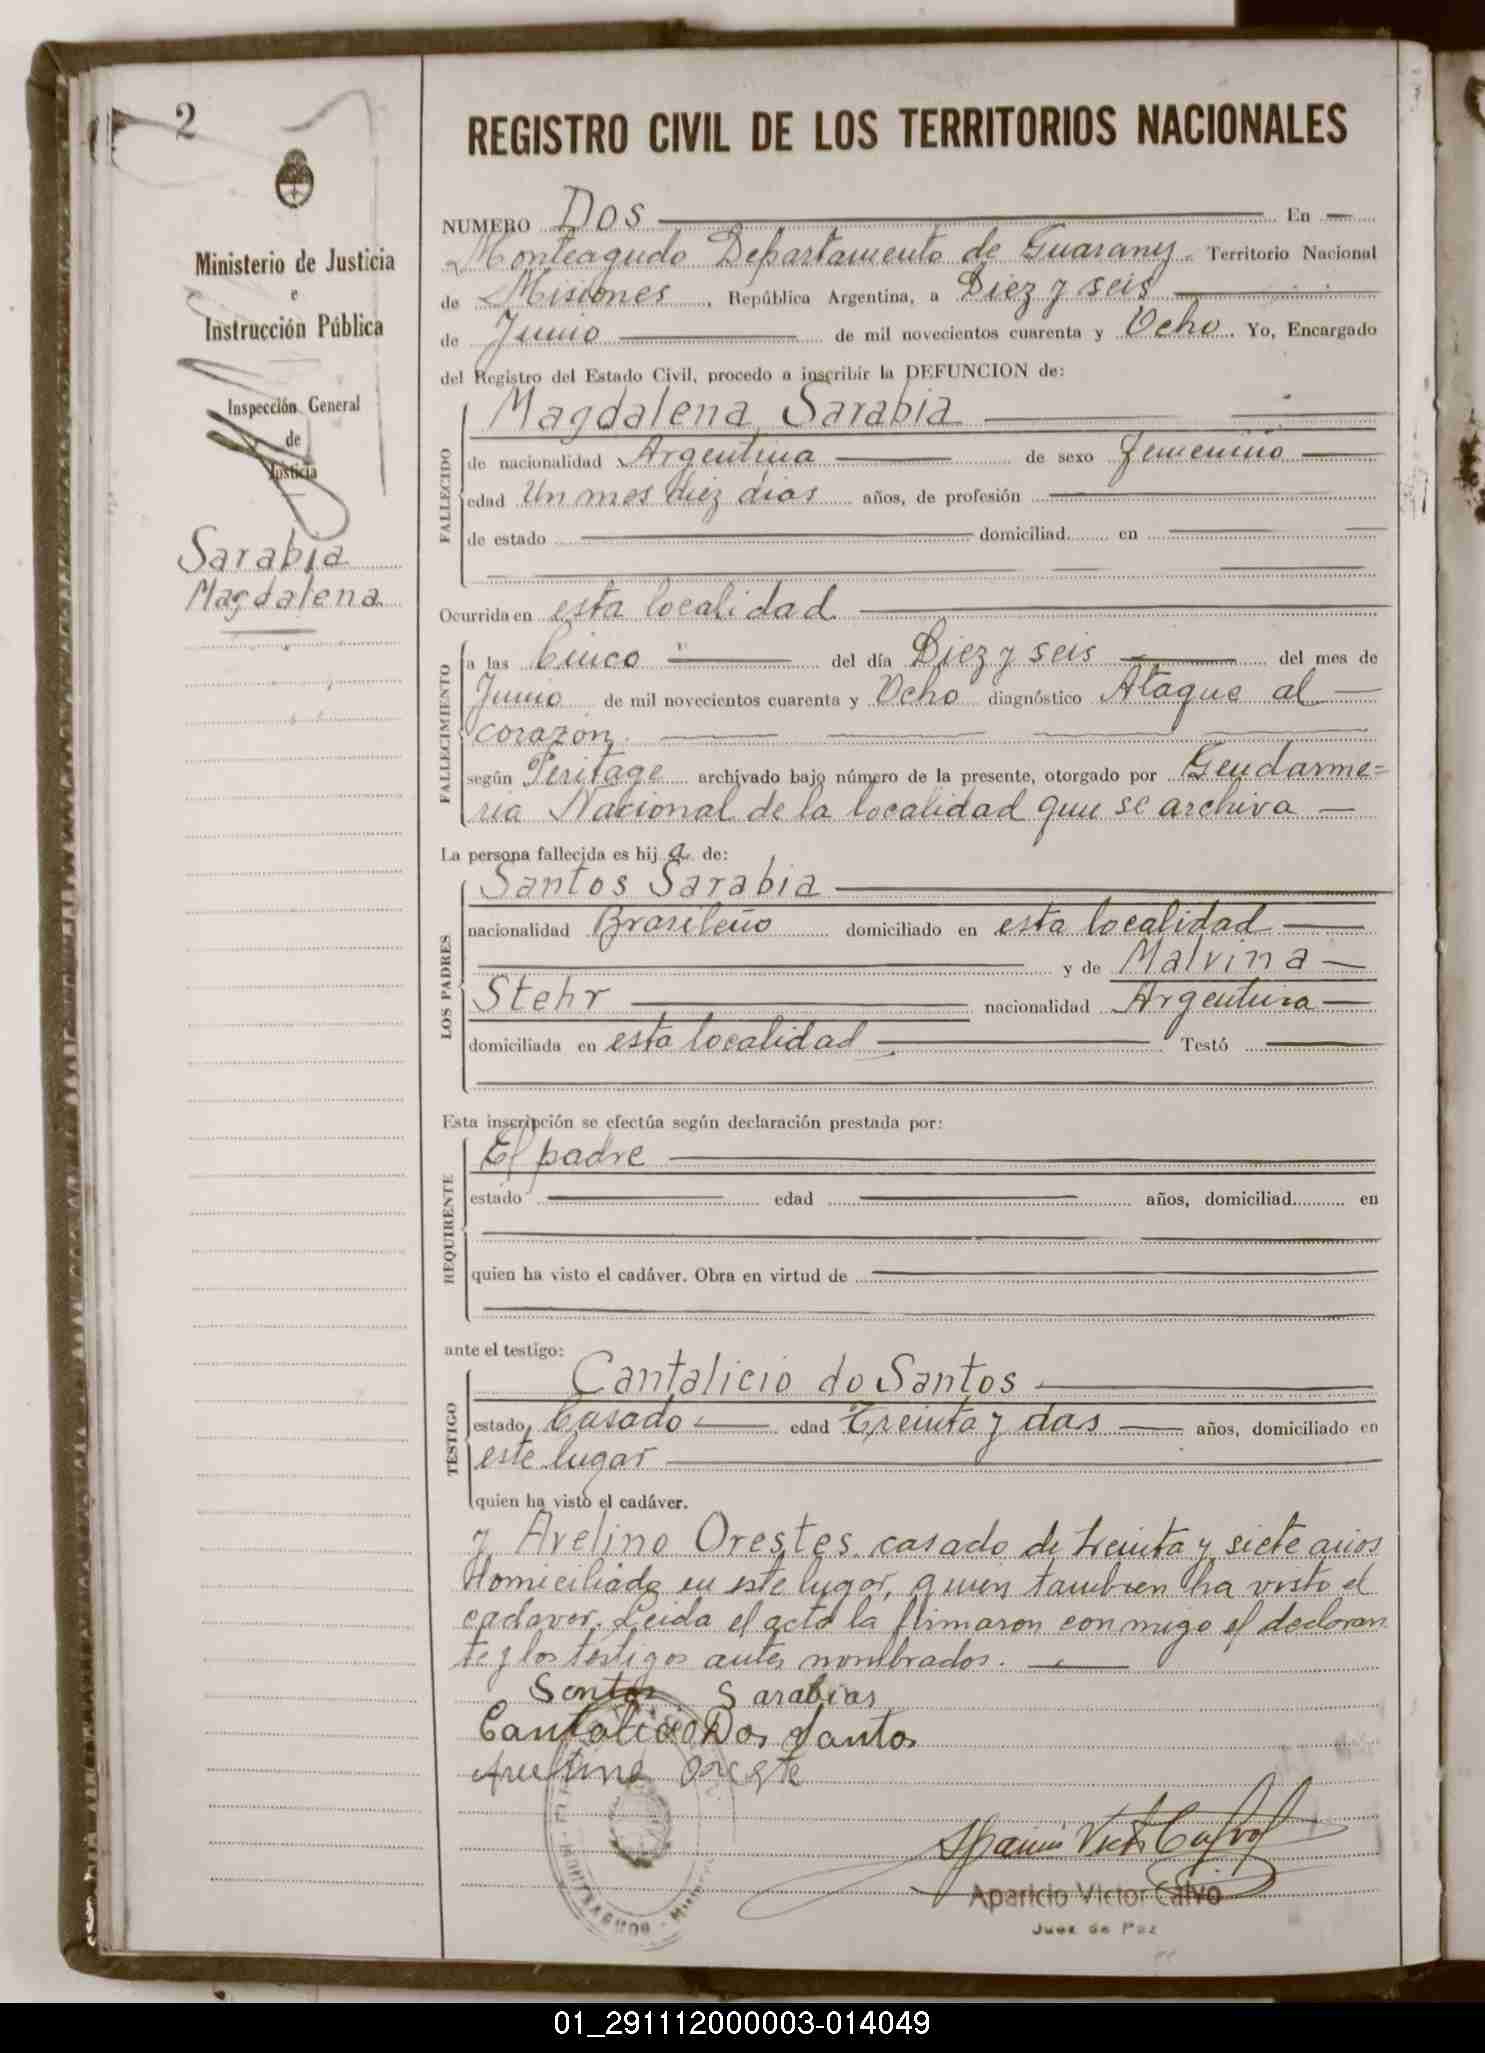 2
Ministerio de Justicia
e
Instrucción Pública
Inspección General
de
Justicia
Sarabia
Magdalena
REGISTRO CIVIL DE LOS TERRITORIOS NACIONALES
NUMERO Dos En
Monteagudo Departamento de Guarany. Territorio Nacional
de Misiones, República Argentina, a Diez y seis
de Junio de mil novecientos cuarenta y Ocho. Yo, Encargado
del Registro del Estado Civil, procedo a inscribir la DEFUNCION de:
FALLECIDO
Magdalena Sarabia
de nacionalidad Argentina de sexo femenino
edad Un mes diez dias años, de profesión
de estado domiciliad en
Ocurrida en esta localidad
FALLECIMIENTO
a las Cinco del día Diez y seis del mes de
Junio de mil novecientos cuarenta y Ocho diagnóstico Ataque al
corazón.
según Peritage archivado bajo número de la presente, otorgado por Gendarme=
ria Nacional de la localidad que se archiva
La persona fallecida es hij a de:
LOS PADRES
Santos Sarabia
nacionalidad Brasileño domiciliado en esta localidad
y de Malvina
Stehr nacionalidad Argentina
domiciliada en esta localidad Testó
Esta inscripción se efectúa según declaración prestada por:
REQUIRENTE
El padre
estado edad años, domiciliad en
quien ha visto el cadáver. Obra en virtud de
ante el testigo:
TESTIGO
Cantalicio do Santos
estado Casado edad Treinta y dos años, domiciliado en
este lugar
quien ha visto el cadáver.
y Avelino Orestes. casado de treinta y siete años
domiciliado en este lugar, quien tambien ha visto el
cadaver. Leida el acta la firmaron conmigo el declaran
te y los testigos antes nombrados.
Santos Sarabias
Cantalicio Dos Santos
Avelino Oreste
Aparicio Victor Calvo
Juez de Paz
01_291112000003-014049